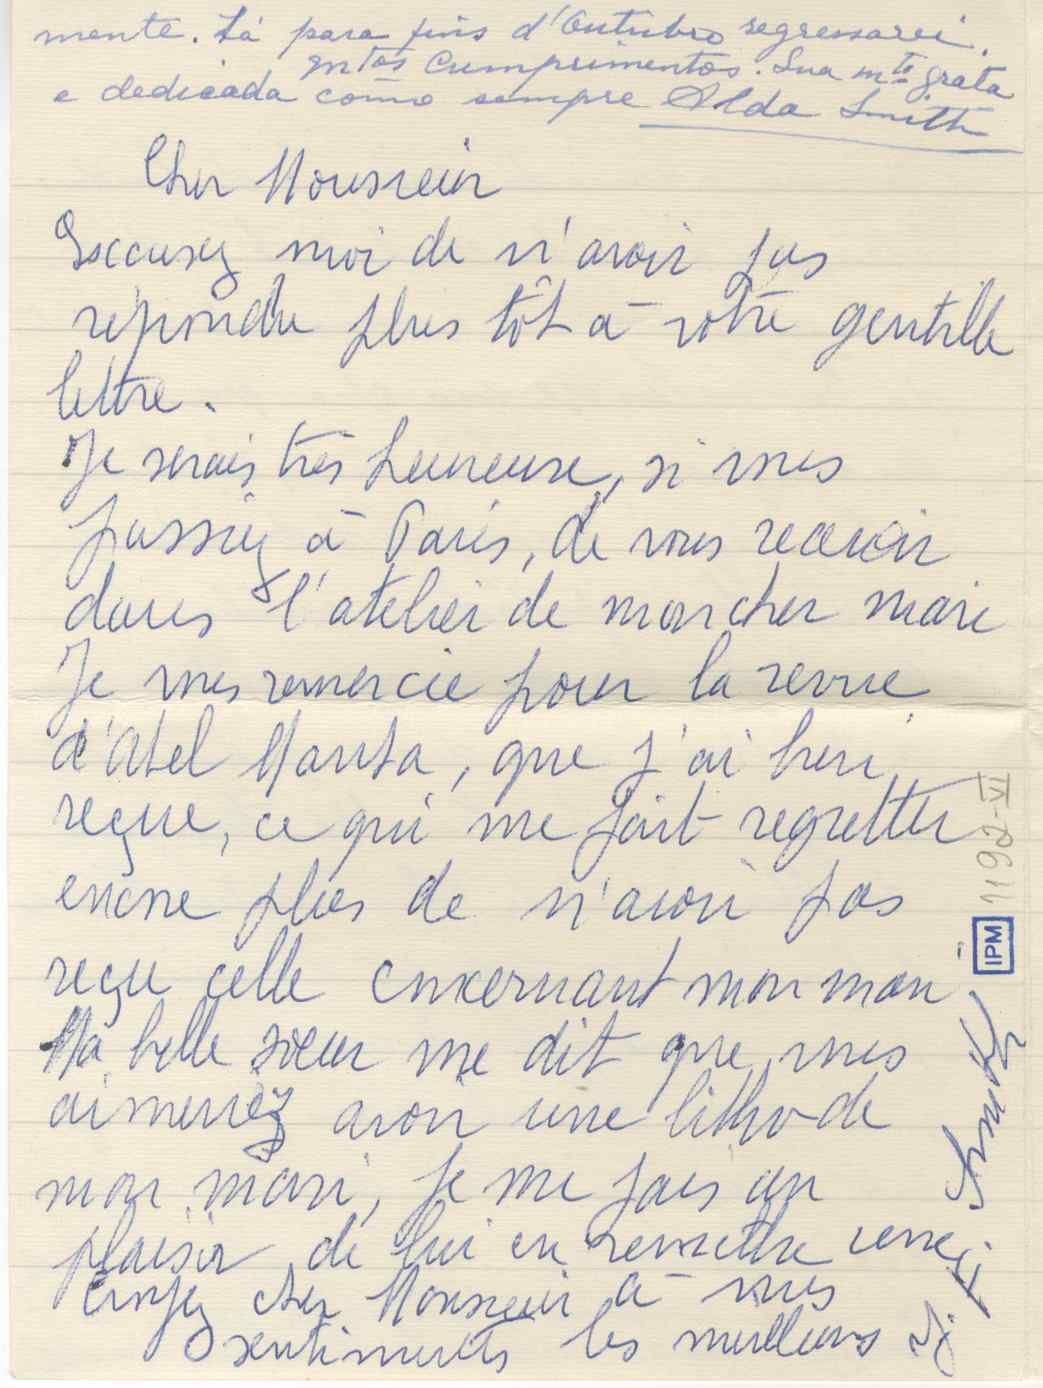 mente. Lá para fins d'Outubro regressarei.
Mtos Cumprimentos. Sua mto grata
e dedicada como sempre Alda Smith
Cher Monsieur
Excusez moi de n'avoir pas
répondu plus tôt à votre gentille
lettre.
Je serais très heureuse, si vous
passiez à Paris, de vous recevoir
dans l'atelier de mon cher mari
Je vous remercie pour la revue
d'Abel Manta, que j'ai bien
reçue, ce qui me fait regretter
encore plus de n'avoir pas
reçu celle concernant mon mari
Ma belle soeur me dit que vous
aimeriez avoir une litho de
mon mari, je me fais un
plaisir de lui en remettre une
Croyez cher Monsieur à mes
sentiments les meilleurs
Smith
IPM 1192-VI